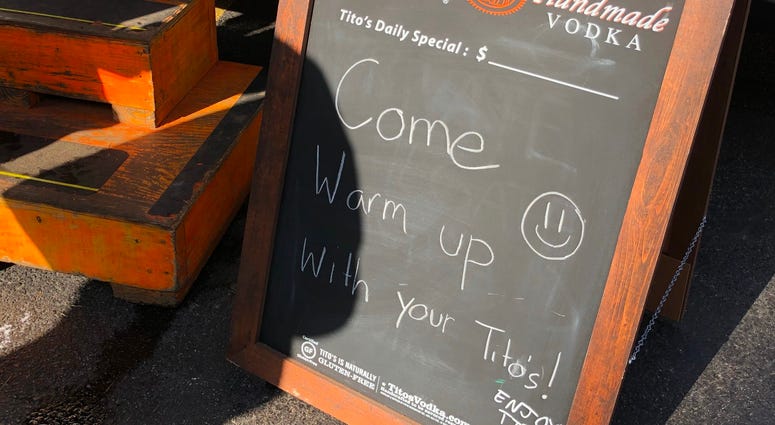 Handmade
VODKA
Tito's Daily Special: $
Come
Warm up
With your Tito's!
Certified
GF
TITO'S IS NATURALLY
GLUTEN-FREE
TitosVodka.com
ENJOY